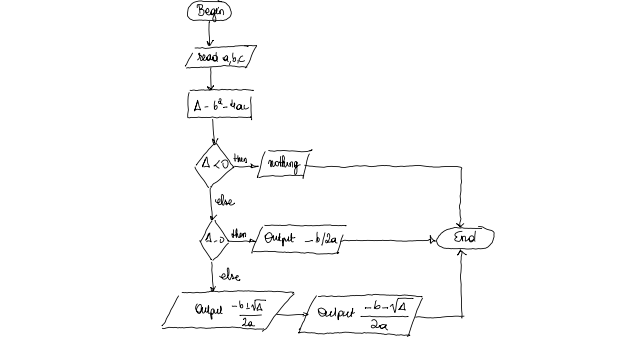 Begin
read a,b,c
Δ - b² - 4ac
Δ < 0
then
nothing
else
Δ = 0
then
Output -b/2a
End
else
Output (-b ± √Δ)/2a
Output (-b - √Δ)/2a